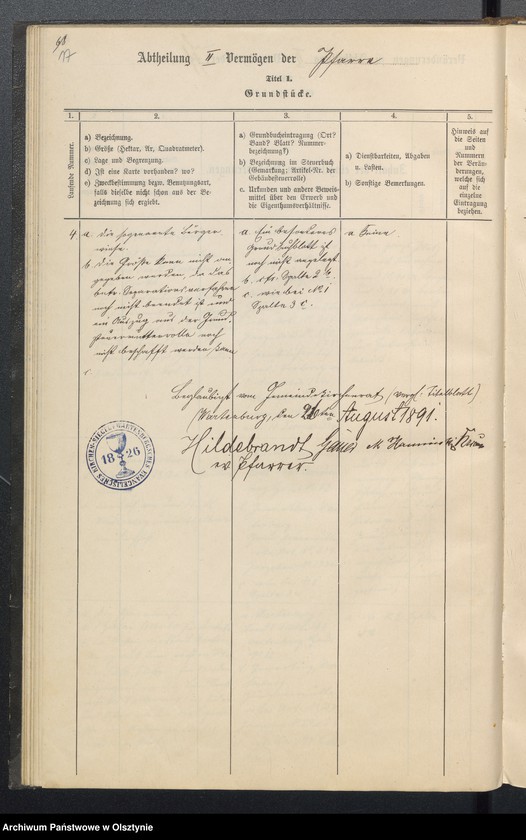 68
17
Abtheilung II Vermögen der Pfarre
Titel I.
Grundstücke.
1.
2.
3.
4.
5.
Laufende Nummer.
a) Bezeichnung.
b) Größe (Hektar, Ar, Quadratmeter).
c) Lage und Begrenzung.
d) Ist eine Karte vorhanden? wo?
e) Zweckbestimmung bezw. Benutzungsart,
falls dieselbe nicht schon aus der Be-
zeichnung sich ergiebt.
a) Grundbucheintragung (Ort?
Band? Blatt? Nummer-
bezeichnung?)
b) Bezeichnung im Steuerbuch
(Gemarkung; Artikel-Nr. der
Gebäudesteuerrolle)
c. Urkunden und andere Beweis-
mittel über den Erwerb und
die Eigenthumsverhältnisse.
a) Dienstbarkeiten, Abgaben
u. Lasten.
b) Sonstige Bemerkungen.
Hinweis auf
die Seiten
und
Nummern
der Verän-
derungen,
welche sich
auf die
einzelne
Eintragung
beziehen.
4. a. die sogenannte
wiese.
b. die Größe kann nicht an-
gegeben werden, da das
betr. Separationsverfahren
noch nicht beendet ist und
ein Auszug aus der Grund-
steuermutterrolle noch
nicht beschafft werden kann
c.
a. Ein besonderes
Grundbuchblatt ist
noch nicht angelegt
b. cfr. Spalte 2 b.
c. wie bei № 1
Spalte 3 c.
a. Keine.
Beglaubigt vom Gemeindekirchenrat, (vergl. Titelblatt)
Wartenburg, den 26ten August 1891.
Hildebrandt
ev. Pfarrer.
1826
Archiwum Państwowe w Olsztynie